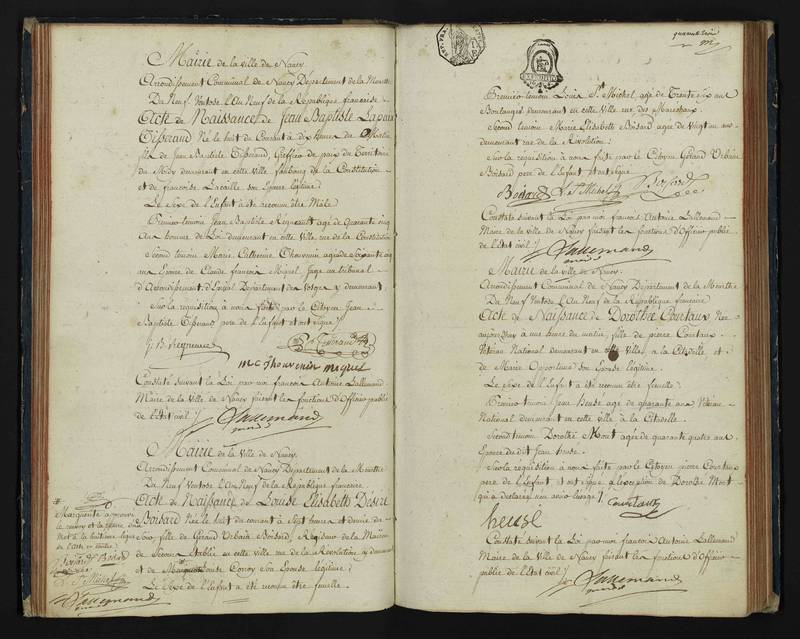 Mairie de la ville de Nancy
Arrondissement Communal de Nancy Département de la Meurthe
Du Neuf Ventose l'An Neuf de la République française
Acte de Naissance de Jean Baptiste
Tisserand Né le huit du Courant à dix heures du Matin
fils de Jean Baptiste Tisserand, Greffier de paix du Territoire
du Midy demeurant en cette Ville faubourg de la Constitution
et de françoise Lacaille son Epouse légitime
Le Sexe de l'Enfant a été reconnu être Mâle
Premier temoin Jean Baptiste Requeault agé de quarante cinq
Ans homme de Loi demeurant en cette Ville rue de la Constitution
Second temoin Marie Catherine Thouvenin agée de Soixante
ans Epouse de Claude françois Miquel Juge au tribunal
d'Arrondissement d'Epinal Département des Vosges y demeurant
Sur la réquisition à nous faite par le Citoyen Jean
Baptiste Tisserand pere de l'Enfant et ont signé
mc Thouvenin miquel
Constaté suivant la Loi par moi françois Antoine Lallemand
Maire de la Ville de Nancy faisant les fonctions d'Officier public
de l'Etat civil
Lallemand
Mairie de la Ville de Nancy
Arrondissement Communal de Nancy Département de la Meurthe
Du Neuf Ventose l'An Neuf de la République française
Acte de Naissance de Louise Elisabeth Désiré
Boisard Née le huit du courant à Sept heures et demie du
Soir, fille de Gérard Urbain Boisard, Régisseur de la Maison
de Secours établie en cette ville rue de la Révolution y demeurant
et de Marguerite son Epouse légitime
Le Sexe de l'Enfant a été reconnu être femelle
Marguerite approuvé
Lallemand
quarante trois
Premier temoin Louis St Michel agé de Trente six ans
Boulanger demeurant en cette Ville rue des Maréchaux
Second temoin Marie Elisabeth Boisard agée de vingt un ans
demeurant rue de la Révolution
Sur la réquisition à nous faite par le Citoyen Gérard Urbain
Boisard pere de l'Enfant et ont signé
Boisard L St Michel Boisard
Constaté suivant la Loi par moi françois Antoine Lallemand
Maire de la Ville de Nancy faisant les fonctions d'Officier public
de l'Etat civil
Lallemand
Mairie de la ville de Nancy
Arrondissement Communal de Nancy Département de la Meurthe
Du Neuf Ventose l'An Neuf de la République française
Acte de Naissance de Dorothée Courtaux Née
aujourd'huy à une heure du matin, fille de pierre Courtaux
Vétéran National demeurant en cette Ville, à la Citadelle, et
de Marie Opportune son Epouse légitime
Le Sexe de l'Enfant a été reconnu être femelle
Premier temoin Jean Heuse agé de quarante ans Vétéran
National demeurant en cette ville à la Citadelle
Second temoin Dorothé Mont agée de quarante quatre ans
Epouse du dit Jean heuse
Sur la réquisition a nous faite par le Citoyen pierre Courtaux
pere de l'Enfant et ont signé à l'exception de Dorothé Mont
qui a déclaré n'en avoir l'usage
Courtaux
heuse
Constaté suivant la Loi par moi françois Antoine Lallemand
Maire de la Ville de Nancy faisant les fonctions d'Officier
public de l'Etat civil
Lallemand